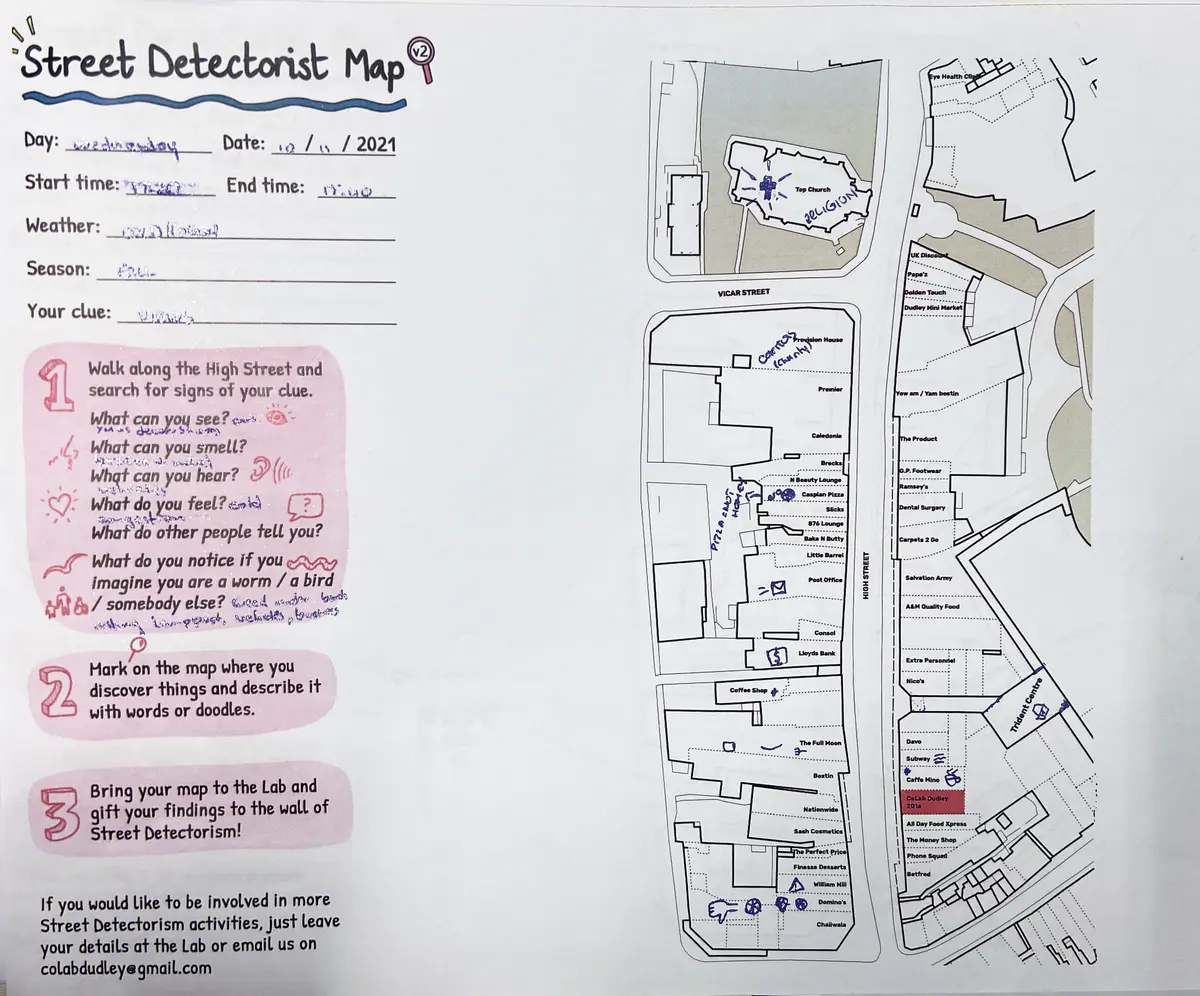 Street Detectorist Map v2
Day: Wednesday Date: 10 / 11 / 2021
Start time: End time: 17:00
Weather:
Season: Fall
Your clue:
1 Walk along the High Street and
search for signs of your clue.
What can you see? cars
What can you smell?
What can you hear?
What do you feel? cold
?
What do other people tell you?
What do you notice if you
imagine you are a worm / a bird
/ somebody else?
2 Mark on the map where you
discover things and describe it
with words or doodles.
3 Bring your map to the Lab and
gift your findings to the wall of
Street Detectorism!
If you would like to be involved in more
Street Detectorism activities, just leave
your details at the Lab or email us on
colabdudley@gmail.com
Eye Health Clinic
Top Church
RELIGION
VICAR STREET
HIGH STREET
Provision House
(charity)
Premier
Caledonia
Brecks
N Beauty Lounge
Caspian Pizza
PIZZA
Slicks
876 Lounge
Bake N Butty
Little Barrel
Post Office
Consol
Lloyds Bank
$
Coffee Shop
The Full Moon
Bostin
Nationwide
Sash Cosmetics
The Perfect Price
Finesse Desserts
William Hill
Domino's
Chaiiwala
UK Discount
Papa's
Golden Touch
Dudley Mini Market
Yow am / Yam bostin
The Product
G.P. Footwear
Ramsey's
Dental Surgery
Carpets 2 Go
Salvation Army
A&M Quality Food
Extra Personnel
Nico's
Trident Centre
Davo
Subway
Caffe Mino
CoLab Dudley
201a
All Day Food Xpress
The Money Shop
Phone Squad
Betfred